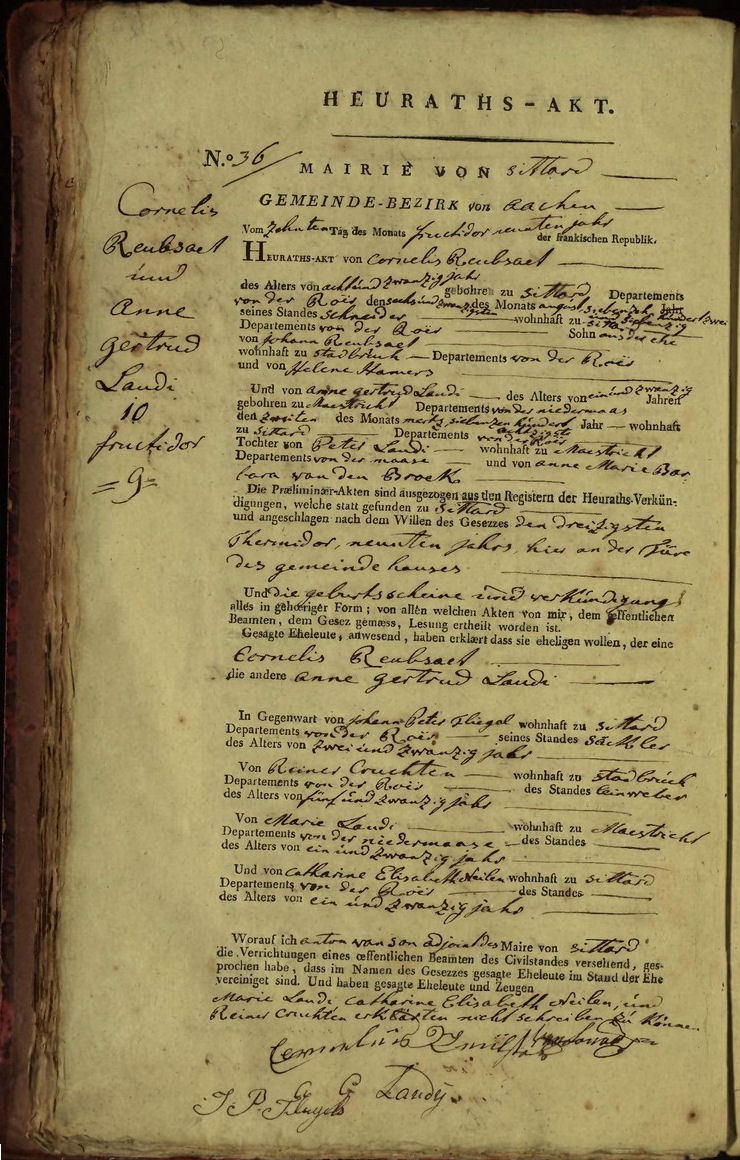 HEURATHS-AKT.
N.º 36
MAIRIE VON Sittard
GEMEINDE-BEZIRK von Aachen
Cornelis
Reubsaet
und
Anne
gertrud
Laudi
10
fructidor
=9=
Vom Zehnten Tag des Monats fructidor neunten jahr
der fränkischen Republik.
HEURATHS-AKT von Cornelis Reubsaet
des Alters von acht und zwanzig jahr
gebohren zu Sittard Departements
von der Roer den sechs und zwanzigsten des Monats august siebenzehnhundert zwei
und siebenzig Jahr
seines Standes Schneider wohnhaft zu Sittard
Departements von der Roer Sohn aus der ehe
von johann Reubsaet
wohnhaft zu Stadbruck Departements von der Roer
und von Helene Hamers
Und von anne gertrud Laudi des Alters von ein und zwanzig
Jahren
gebohren zu Maestricht Departements von der niedermaas
den zweiten des Monats mertz siebenzenhundert Jahr wohnhaft
achtzigste
zu Sittard Departements von der Roer
Tochter von Peter Laudi wohnhaft zu Maestricht
Departements von der maase und von anne Marie Bar
bara van den Broek
Die Præliminær-Akten sind ausgezogen aus den Registern der Heuraths-Verkün-
digungen, welche statt gefunden zu Sittard
und angeschlagen nach dem Willen des Gesezes den dreisigsten
Thermidor, neunten jahrs, hier an der Türe
des gemeinde hauses
Und die geburtsscheine und verkündigung
alles in gehœriger Form; von allen welchen Akten von mir, dem œffentlichen
Beamten, dem Gesez gemæss, Lesung ertheilt worden ist.
Gesagte Eheleute, anwesend, haben erklært dass sie eheligen wollen, der eine
Cornelis Reubsaet
die andere anne gertrud Laudi
In Gegenwart von johann Peter Flegel wohnhaft zu Sittard
Departements von der Roer seines Standes Sattler
des Alters von zwei und zwanzig jahr
Von Reiner Cruchten wohnhaft zu Stadbrück
Departements von der Roer des Standes leinweber
des Alters von fünf und zwanzig jahr
Von Marie Laudi wohnhaft zu Maestricht
Departements von der niedermaase des Standes
des Alters von ein und zwanzig jahr
Und von Catharine Elisabeth Heilen wohnhaft zu Sittard
Departements von der Roer des Standes
des Alters von ein und zwanzig jahr
Worauf ich anton van son adjoint des Maire von Sittard
die Verrichtungen eines œffentlichen Beamten des Civilstandes versehend, ges-
prochen habe, dass im Namen des Gesezzes gesagte Eheleute im Stand der Ehe
vereiniget sind. Und haben gesagte Eheleute und Zeugen
Marie Laudi, Catharine Elisabeth Heilen, und
Reiner Cruchten erklärten nicht schreiben zu können
Cornelius
G Laudy
J. P. Flugels